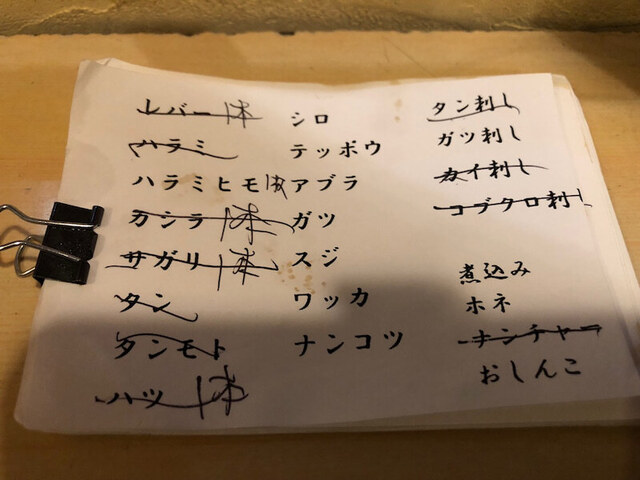 レバー 1本
ハラミ
ハラミヒモ
カシラ 1本
サガリ 1本
タン
タンモト
ハツ 1本
シロ
テッポウ
アブラ
ガツ
スジ
ワッカ
ナンコツ
タン刺し
ガツ刺し
カイ刺し
コブクロ刺し
煮込み
ホネ
キンチャー
おしんこ